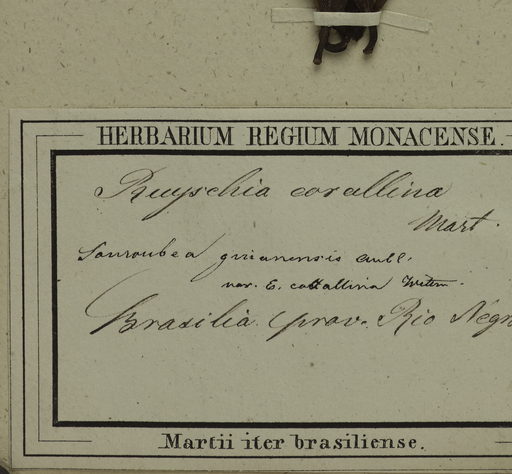 HERBARIUM REGIUM MONACENSE.
Ruyschia corallina
Mart.
Souroubea guianensis Aubl.
var. corallina Wittm.
Brasilia. prov. Rio Negro
Martii iter brasiliense.